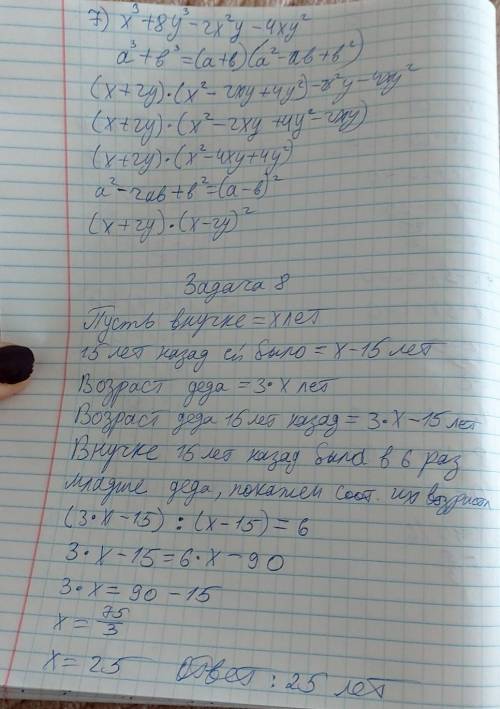 7) x³ + 8y³ - 2x²y - 4xy²
a³ + b³ = (a+b)(a² - ab + b²)
(x+2y)·(x² - 2xy + 4y²) - 2x²y - 4xy²
(x+2y)·(x² - 2xy + 4y² - 2xy)
(x+2y)·(x² - 4xy + 4y²)
a² - 2ab + b² = (a-b)²
(x+2y)·(x-2y)²
Задача 8
Пусть внучке = x лет
15 лет назад ей было = x - 15 лет
Возраст деда = 3·x лет
Возраст деда 15 лет назад = 3·x - 15 лет
Внучке 15 лет назад была в 6 раз
младше деда, покажем соот. их возраста
(3·x - 15) : (x - 15) = 6
3·x - 15 = 6·x - 90
3·x = 90 - 15
x = 75/3
x = 25 Ответ: 25 лет